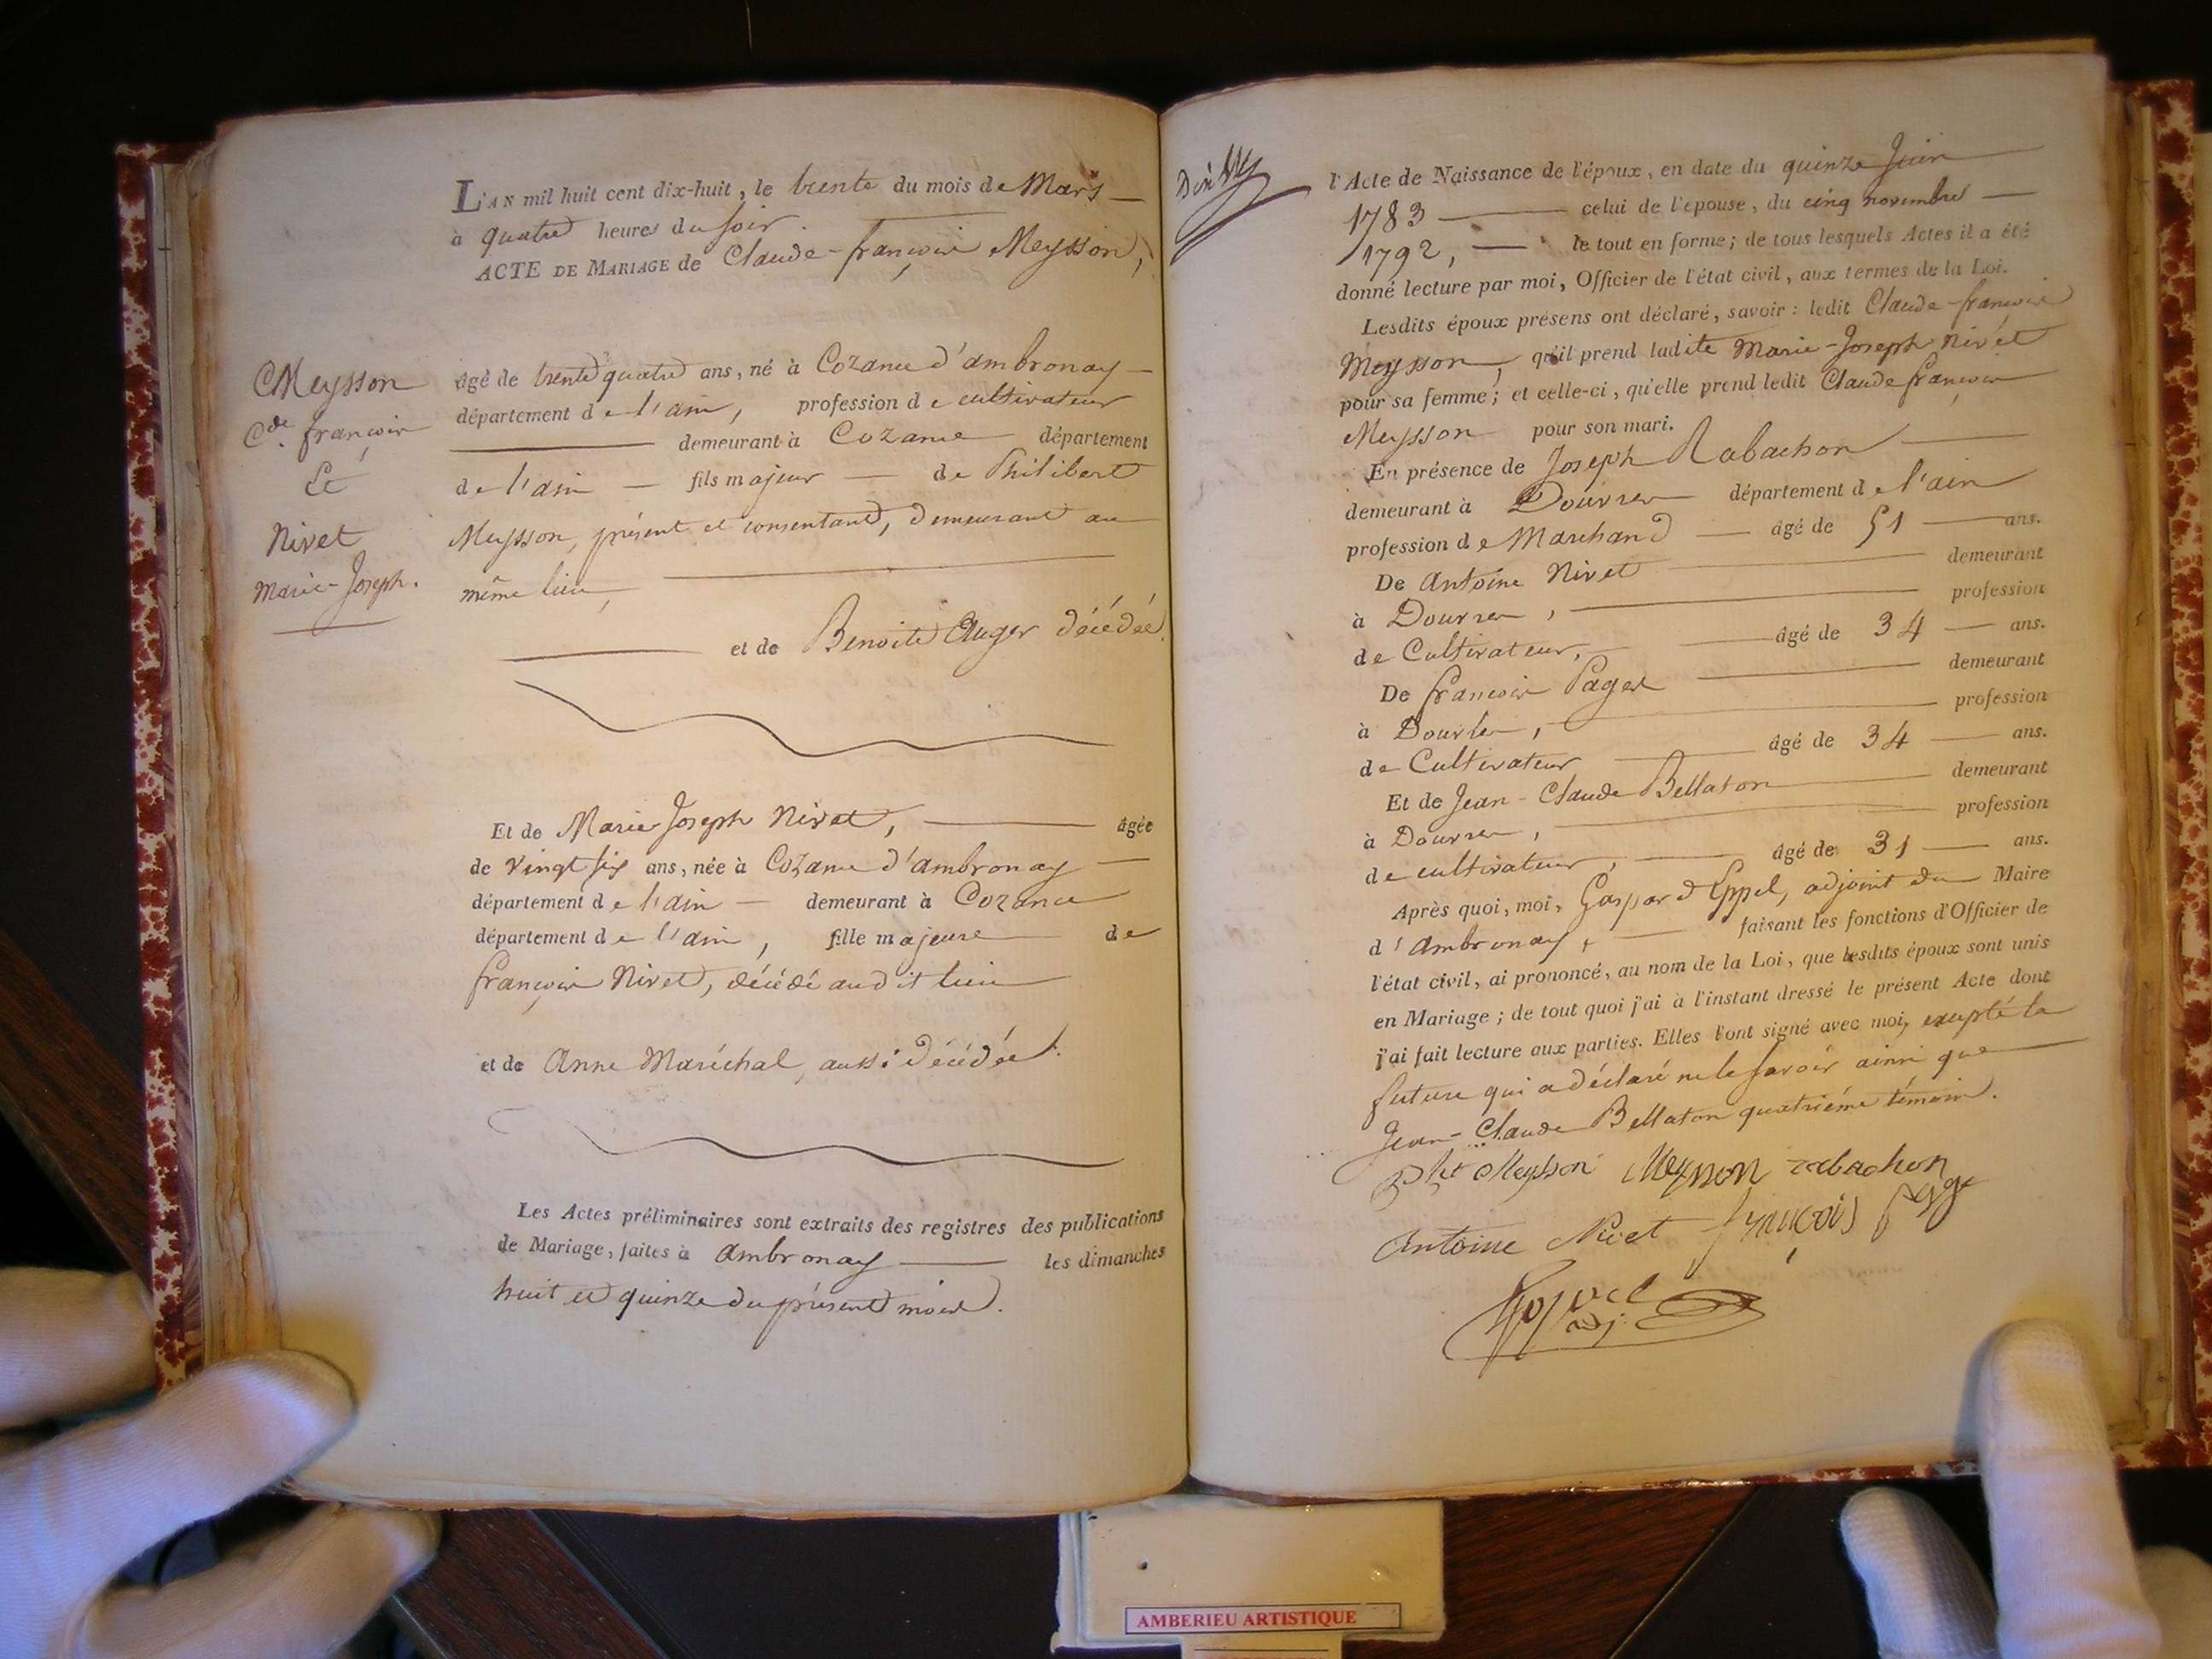 L'AN mil huit cent dix-huit, le trente du mois de Mars
à quatre heures du soir.
ACTE DE MARIAGE de Claude-françois Meysson,
Meysson
Cde. françois
Et
Nivet
Marie-Joseph.
âgé de trente quatre ans, né à Cozance d'ambronay
département de l'ain, profession de cultivateur
demeurant à Cozance département
de l'ain fils majeur de Philibert
Meysson, présent et consentant, demeurant au
même lieu,
et de Benoite Auger décédée.
Et de Marie-Joseph Nivet, âgée
de vingt six ans, née à Cozance d'ambronay
département de l'ain demeurant à Cozance
département de l'ain, fille majeure de
françois Nivet, décédé audit lieu
et de Anne Maréchal, aussi décédée.
Les Actes préliminaires sont extraits des registres des publications
de Mariage, faites à Ambronay les dimanches
huit et quinze du présent mois.
l'Acte de Naissance de l'époux, en date du quinze Juin
1783 celui de l'épouse, du cinq novembre
1792, le tout en forme; de tous lesquels Actes il a été
donné lecture par moi, Officier de l'état civil, aux termes de la Loi.
Lesdits époux présens ont déclaré, savoir: ledit Claude-françois
Meysson, qu'il prend ladite Marie-Joseph Nivet
pour sa femme; et celle-ci, qu'elle prend ledit Claude françois
Meysson pour son mari.
En présence de Joseph Rabachon
demeurant à Douvres département de l'ain
profession de Marchand âgé de 51 ans.
De Antoine Nivet demeurant
à Douvres, profession
de Cultivateur, âgé de 34 ans.
De françois Pages demeurant
à Douvres, profession
de Cultivateur âgé de 34 ans.
Et de Jean-Claude Bellaton demeurant
à Douvres, profession
de cultivateur, âgé de 31 ans.
Après quoi, moi, Gaspard Eppel, adjoint du Maire
d'Ambronay, faisant les fonctions d'Officier de
l'état civil, ai prononcé, au nom de la Loi, que lesdits époux sont unis
en Mariage; de tout quoi j'ai à l'instant dressé le présent Acte dont
j'ai fait lecture aux parties. Elles l'ont signé avec moi, excepté la
future qui a déclaré ne le savoir ainsi que
Jean-Claude Bellaton quatrième témoin.
Meysson Meysson rabachon
Antoine Nivet françois
adj.
AMBERIEU ARTISTIQUE